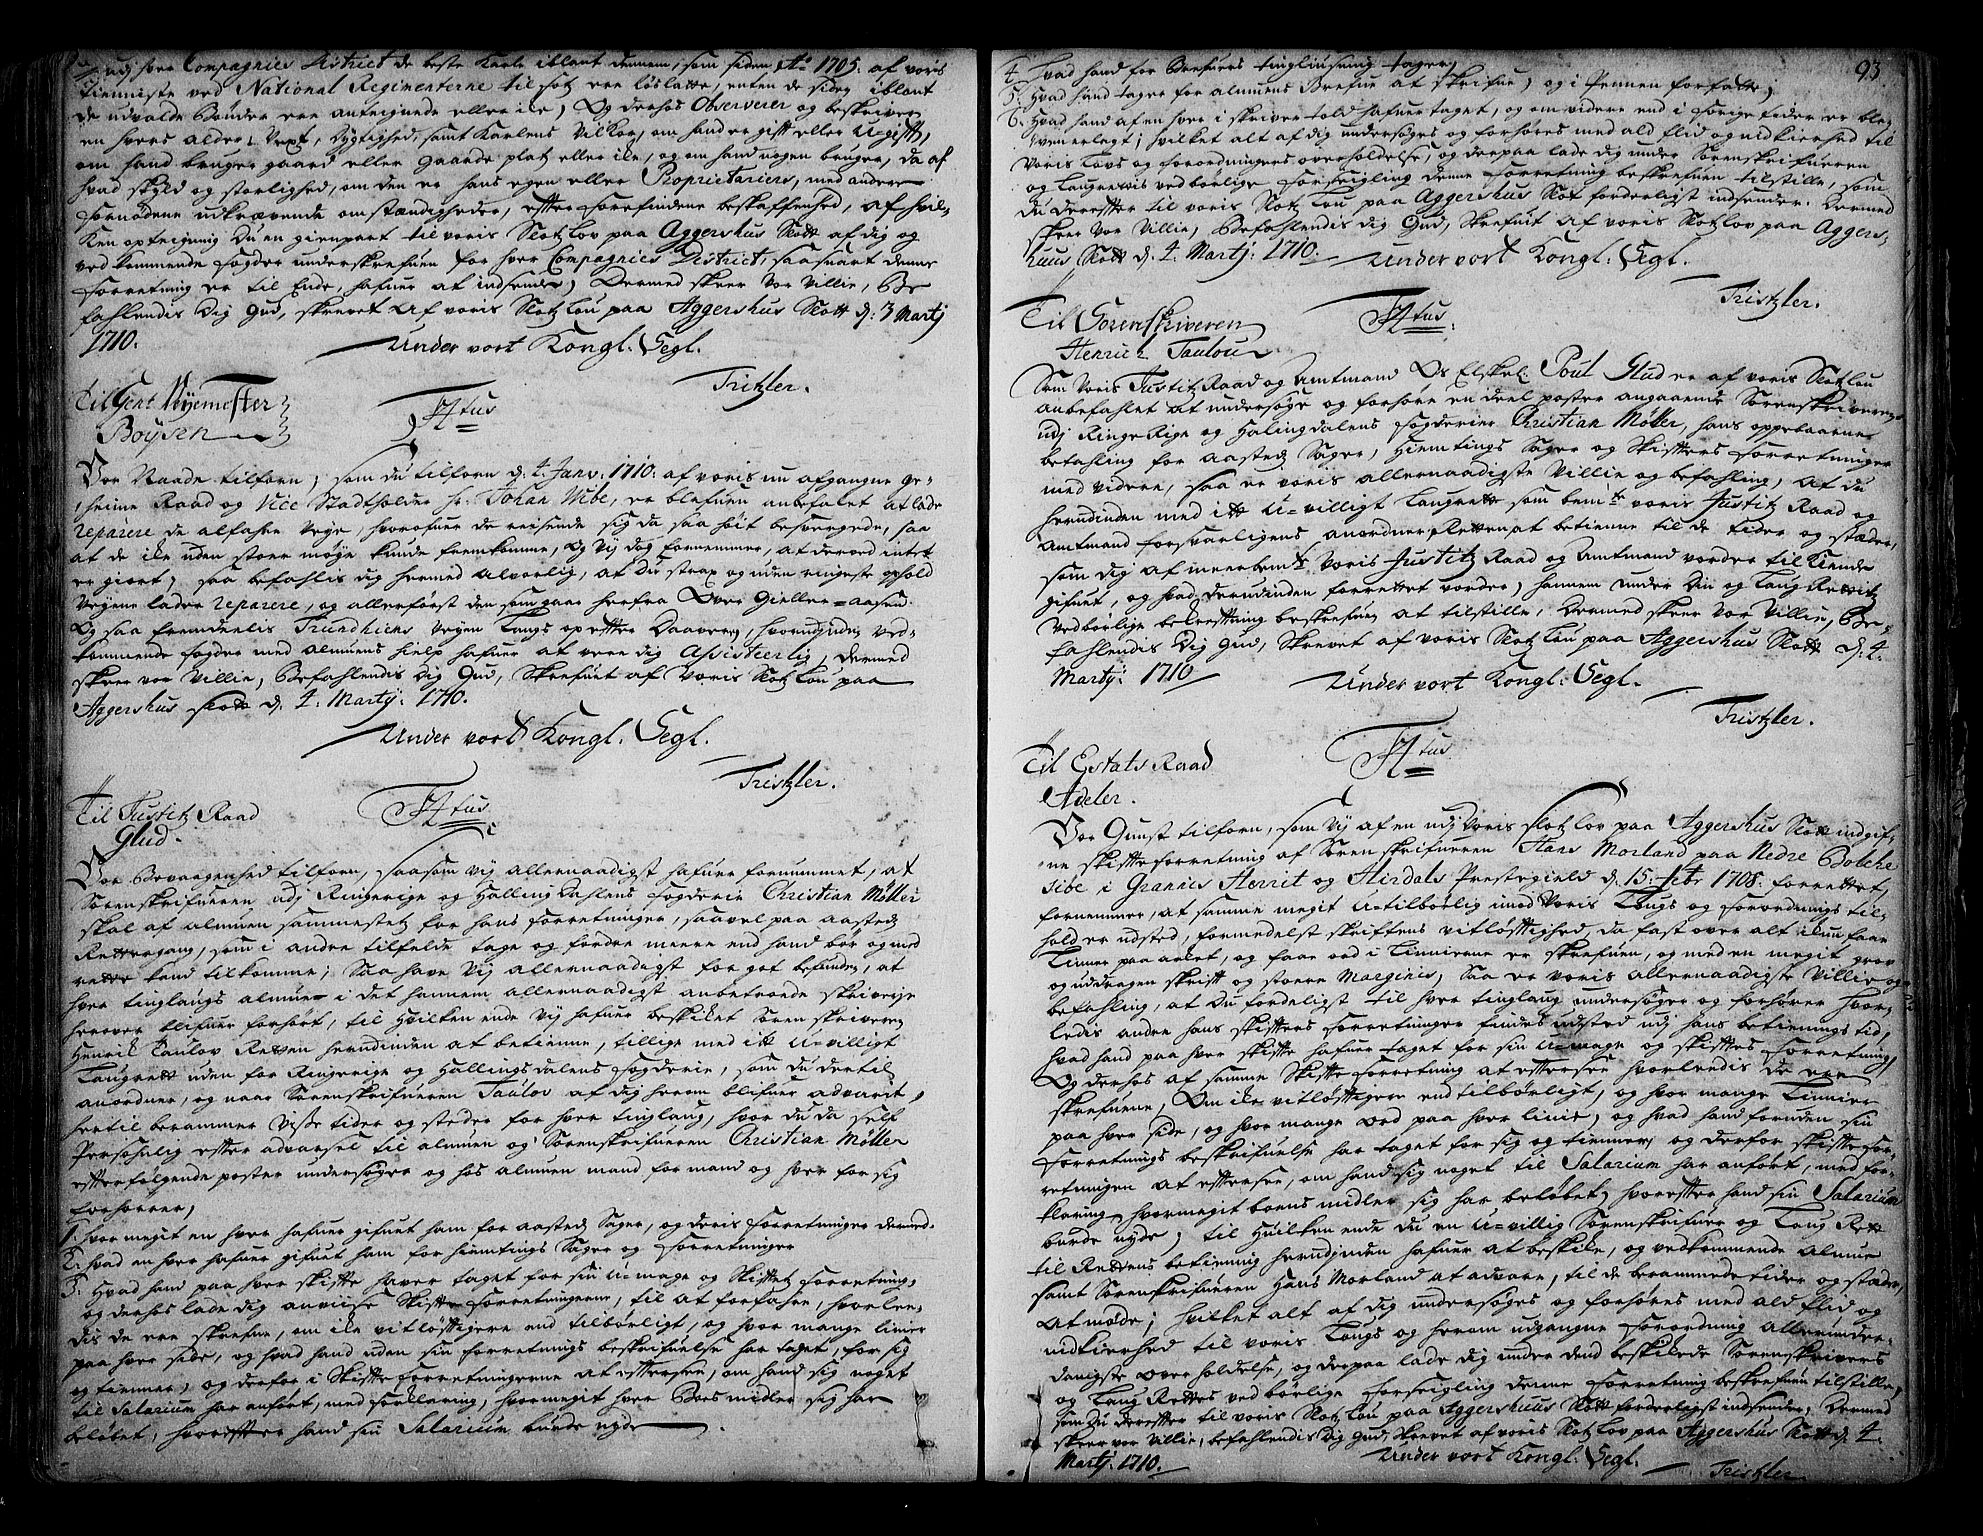 udj hver Compagnies District de beste Karle iblant dennem, som siden Ao 1705. af voris
Tienniste ved National Regimenterne til fotz ere løslatte, enten de sideg iblant
de udvalde Bønder ere anteignede eller icke; Og derhos Observerer og beskriver
en hvers alder, Vext, Dygtighed, samt Karlens Vilkor, om hand er gift eller Ugift,
om hand bruger gaard eller gaarde platz eller icke, og om hand nogen bruger, da af
hvad skyld og storlighed, om den er hans egen eller Proprietariers, med andere
fornødene udkrævende omstændigheder, efter forefindene beskaffenhed, af hvil-
ken opteigning Du en gienpart til voris Slotz Lov paa Aggershus Slott af dig og
vedkommende fogder underskrefuen for hver Compagnies District, saasnart denne
forretning er til Ende, hafuer at indsende; Dermed skeer vor Villie, Be
fahlendis Dig Gud, skrevet Af voris Slotz Lou paa Aggershus Slott d: 3 Martij
1710.
Under vort Kongl: Segl.
Tritzler.
Til Gen: Veyemester
Boysen
F4tus
Vor Naade tilforn; som du tilforn d. 4. Janv. 1710. af voris nu afgangne Ge-
heime Raad og Vice Stadtholder hr. Johan Vibe, er blefuen anbefalet at lade
reparere de alfahre Veye, hvorofuer de reisende sig da saa høit besvergede, saa
at de icke uden stoer møye kunde fremkomme, Og Vij dog fornemmer, at derved intet
er giort; saa befahlis dig hermed alvorlig, at Du strax og uden ringeste ophold
Veyene lader reparere, og allerførst den som gaar herfra Over Gieller-aasen.
Og saa fremdeelis Trundhiems Veyen Langs op efter Daavern, hvorudinden ved-
kommende fogder med almuens hielp hafuer at vere dig Assisteerlig, dermed
skeer vor Villie, Befahlendis Dig Gud, Skrefuet af Voris Slotz Lou paa
Aggershus Slott d. 4. Martij: 1710.
Under vort Kongl: Segl.
Tristzler.
Til Justitz Raad
Glud.
F4tus
Vor Bevaagenhed tilforn, saasom vij allernaadigst hafuer fornummet, at
Sørenskrifueren udj Ringerige og Hallingdahlens fogderie Christian Møller
skal af almuen sammestetz for hans forretninger, saavel paa aasteds
Rettergang, som i andre tilfelde tage og fordre meere end hand bør og med
rette kand tilkomme; Saa have Vij allernaadigst for got befunden, at
hver tinglaugs almue i det hannem allernaadigst anbetroede skriverie
herover blifuer forhørt, til hvilken ende Vij hafuer beskicket Sørenskriveren
Henrich Taulov Retten herudinden at betienne, tillige med itt U-villigt
Laugrett uden for Ringerige og Hallingsdalens fogderie, som Du dertil
anordner, og naar Sørenskrifueren Taulov af dig herom blifuer advaret,
hertil berammer visse tider og steder for hver tinglaug, hvor du da self
Personlig efter advarsel til almuen og Sørenskrifueren Christian Møller
efterfølgende poster undersøger og hos almuen mand for mand og hver for sig
forhører,
1. hvor megit en hver hafuer gifuet ham for aasteds Sager, og deris forretninger dermed.
2. hvad en hver hafuer gifuet ham for hiemtings Sager og forretninger
3. hvad hand paa hver skifte haver taget for sin U-mage og Skiftes forretning,
og derhos lade dig anviise Skifte forretningerne, til at forfahre, hvorlee-
dis de ere skrefne, om icke vitløftigere end tilbørligt, og hvor mange linier
paa hver side, og hvad hand uden sin forretnings beskrifuelse har taget, for sig
og tienner, og derfor i Skifte forretningerne at eftersee, om hand sig noget
til Salarium har anført, med forklaring, hvormegit hver Boes midler sig har
beløbet, hvorefter hand sin Salarium burde nyde
93
4. Hvad hand for Brefuers tinglysning tager,
5. Hvad hand tager for almuens Brefue at skrifue, og i Pennen forfatte;
6. Hvad hand af en hver i skriver told hafuer taget, og om videre end i forige tider er ble-
fven erlagt; hvilket alt af dig undersøges og forhøres med ald flid og nidkierhed til
Voris Lovs og forordningers overholdelse, og derpaa lade dig under Sørenskrifueren
og Laugrettis vedbørlige forseigling denne forretning beskrefuen tilstille, som
Du derefter til voris Slotz Lou paa Aggershus Slot forderligst indsender. Dermed
skeer Vor Villie, Befahlendis dig Gud, Skrefuit af voris Slotz Lov paa Aggers-
huus Slott d. 4 Martij: 1710.
Under vort Kongl: Segl.
Tristzler.
Til Sorenskriveren
Henrich Taulou
F4tus.
Som Voris Justitz Raad og Amtmand Os Elskel: Poul Glud er af voris Slotz Lou
anbefahlet at undersøge og forhøre en deel poster angaaende Sørenskriveren
udj RingeRige og Halingdalens fogderier Christian Møller, hans oppebaarne
betahling for aasteds Sager, Hiemtings Sager og Skifters forretninger
med videre, saa er voris allernaadigste Villie og befahling, at du
herudinden med itt U-villigt Laugrette som bemte voris Justitz Raad og
Amtmand forsvarligens anordner, Retten at betienne til de tider og stæder,
som dig af meerbemte Voris Justitz Raad og Amtmand vorder til kiende
gifuet, og hvad derudinden forrettet vorder, hannem under Din og Laug Rettitz
Vedbørlige bekreftning beskrefuen at tilstille, Dermed skeer Vor Villie, Be-
fahlendis Dig Gud, Skrevet af voris Slotz Lou paa Aggershus Slott d: 4.
Martij: 1710
Under vort Kongl: Segl.
Tristzler.
Til Estats Raad
Adeler.
F4tus
Vor Gunst tilforn, som Vij af en udj Voris Slotz Lov paa Aggershus Slott indgif-
ne skifte forretning af Sørenskrifueren Hans Morland paa Nedre Bolche
sibe i Grannis Herrit og Hirdals Prestegield d. 15. febr 1708. forrettet,
fornemmer, at samme megit U-tilbørlig imod Voris Lougs og forordnings til-
hold er udsted, formedelst skriftens vitløftighed, da fast over alt ikun faae
Linier paa arket, og faae ord i Linnierne er skrefuen, og med en megit grov
og uddragen skrift og stoere Marginis, Saa er voris allernaadigste Villie og
befahling, at Du fordeligst til hver tinglaug undersøger og forhører hvor-
ledis andre hans skifters forretninger findes udsted udj hans betiennings tid,
hvad hand paa hver skifte hafuer taget for sin U-mage og skiftes forretning,
Og derhos af samme Skifte forretning at eftersee hvorlendis de ere
skrefuene, Om icke vitløftigere end tilbørligt, og hvor mange Linnier
paa hver side, og hvor mange ord paa hver linie, og hvad hand foruden sin
forretnings beskrifuelse har taget for sig og tienner, og derfor skifte for-
retningen at eftersee, om hand sig noget til Salarium har anført, med for-
klaring hvormegit boens midler sig har beløbet, hvorefter hand sin Salarium
burde nyde; til hvilken ende Du en U-villig Sørenskrifuer og Laug Rett
til Rettens betienning herudinden hafuer at beskicke, og vedkommende almue
samt Sørenskrifueren Hans Morland at advare, til de berammede tider og stæder
at møde; hvilket alt af dig undersøges og forhøres med ald flid og
nidkierhed til voris Lougs og herom udgangne forordning allerunder-
danigste overholdelse, og derpaa lade dig under dend beskickede Sørenskrivers
og Laug Rettes vedbørlige forseigling denne forretning beskrefuen tilstille,
som Du derefter til voris Slotz Lou paa Aggershuus Slott forderligst indsender, Dermed
skeer vor Villie, befahlendis Dig Gud, skrevet af voris Slotz Lov paa Aggershus Slott d. 4.
Martij: 1710.
Under vort Kongl: Segl.
Tristzler